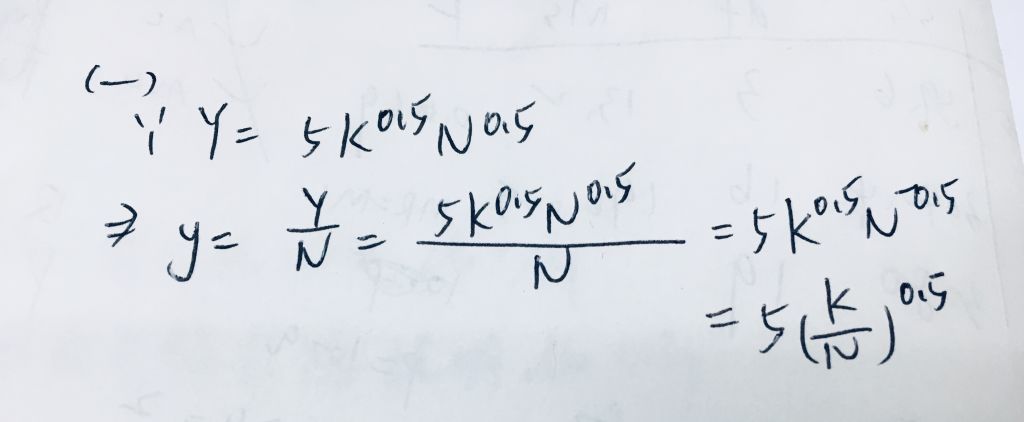 (一)
∵ Y = 5K^0.5 N^0.5
⇒ y = Y/N = 5K^0.5 N^0.5 / N = 5K^0.5 N^-0.5
= 5(K/N)^0.5